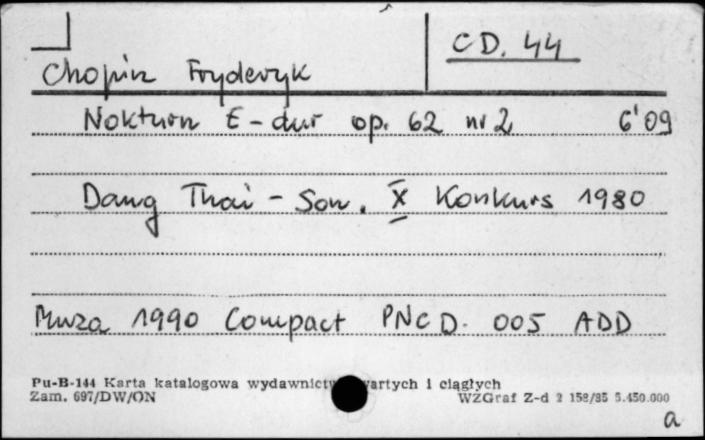 CD. 44
Chopin Fryderyk
Nokturn E-dur op. 62 nr 2 6'09
Dang Thai-Son. X Konkurs 1980
Muza 1990 Compact PNCD. 005 ADD
Pu-B-144 Karta katalogowa wydawnictw zwartych i ciągłych
Zam. 697/DW/ON WZGraf Z-d 2 158/85 5.450.000
a